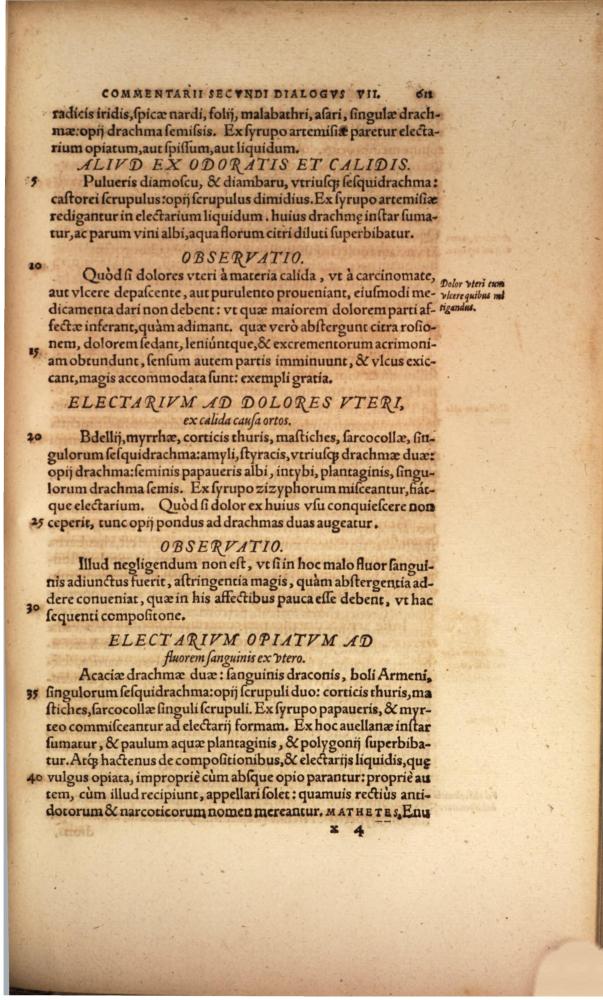 COMMENTARII SECVNDI DIALOGVS VII. 611
radicis iridis,spicæ nardi, folij, malabathri, asari, singulæ drach-
mæ:opij drachma semissis. Ex syrupo artemisiæ paretur electa-
rium opiatum,aut spissum,aut liquidum.
ALIVD EX ODORATIS ET CALIDIS.
5 Pulueris diamoscu, & diambaru, vtriusq; sesquidrachma:
castorei scrupulus:opij scrupulus dimidius.Ex syrupo artemisiæ
redigantur in electarium liquidum. huius drachmę instar suma-
tur,ac parum vini albi,aqua florum citri diluti superbibatur.
OBSERVATIO.
10 Quòd si dolores vteri à materia calida, vt à carcinomate,
aut vlcere depascente, aut purulento proueniant, eiusmodi me-
dicamenta dari non debent: vt quæ maiorem dolorem parti af-
fectæ inferant,quàm adimant. quæ verò abstergunt citra rosio-
Dolor vteri cum
vlcere quibus mi
tigandus.
15 nem, dolorem sedant, leniúntque,& excrementorum acrimoni-
am obtundunt, sensum autem partis imminuunt, & vlcus exic-
cant,magis accommodata sunt: exempli gratia.
ELECTARIVM AD DOLORES VTERI,
ex calida causa ortos.
20 Bdellij,myrrhæ, corticis thuris, mastiches, sarcocollæ, sin-
gulorum sesquidrachma:amyli,styracis,vtriusq; drachmæ duæ:
opij drachma:seminis papaueris albi, intybi, plantaginis, singu-
lorum drachma semis. Ex syrupo zizyphorum misceantur,fiát-
que electarium. Quòd si dolor ex huius vsu conquiescere non
25 ceperit, tunc opij pondus ad drachmas duas augeatur.
OBSERVATIO.
Illud negligendum non est, vt si in hoc malo fluor sangui-
nis adiunctus fuerit, astringentia magis, quàm abstergentia ad-
dere conueniat, quæ in his affectibus pauca esse debent, vt hac
30 sequenti compositone.
ELECTARIVM OPIATVM AD
fluorem sanguinis ex vtero.
Acaciæ drachmæ duæ: sanguinis draconis, boli Armeni,
35 singulorum sesquidrachma:opij scrupuli duo: corticis thuris,ma
stiches,sarcocollæ singuli scrupuli. Ex syrupo papaueris, & myr-
teo commisceantur ad electarij formam. Ex hoc auellanæ instar
sumatur, & paulum aquæ plantaginis, & polygonij superbiba-
tur.Atq; hactenus de compositionibus,& electarijs liquidis,quę
40 vulgus opiata, impropriè cùm absque opio parantur: propriè au
tem, cùm illud recipiunt, appellari solet: quamuis rectiùs anti-
dotorum & narcoticorum nomen mereantur. MATHETES. Enu
x 4